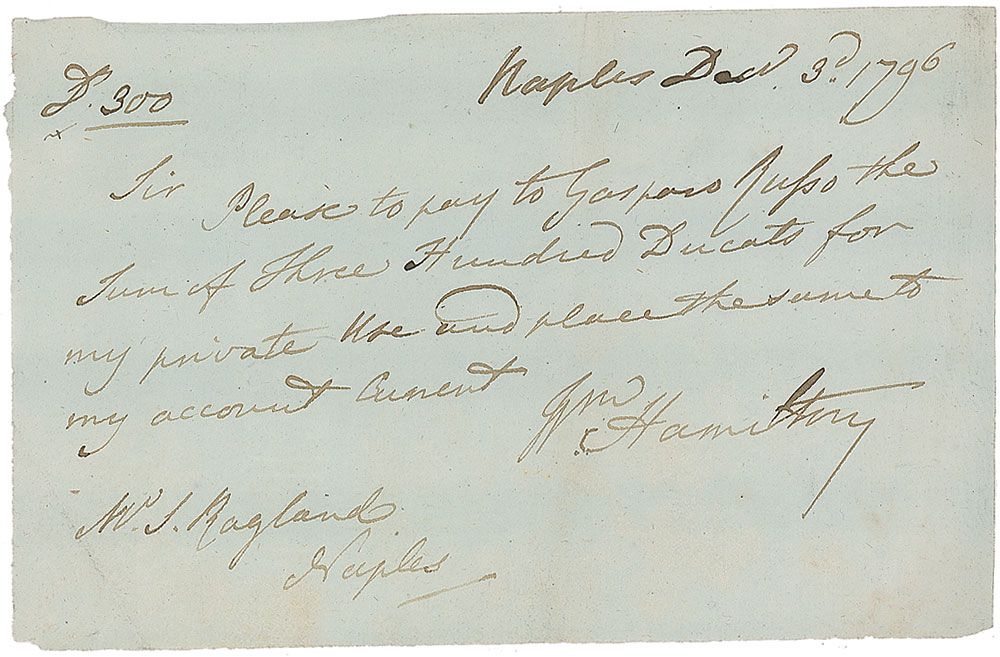 Naples Decr 3d. 1796
D. 300
Sir
Please to pay to Gasparo Russo the
Sum of Three Hundred Ducats for
my private Use and place the same to
my account Current
Wm Hamilton
Mr. S. Ragland
Naples